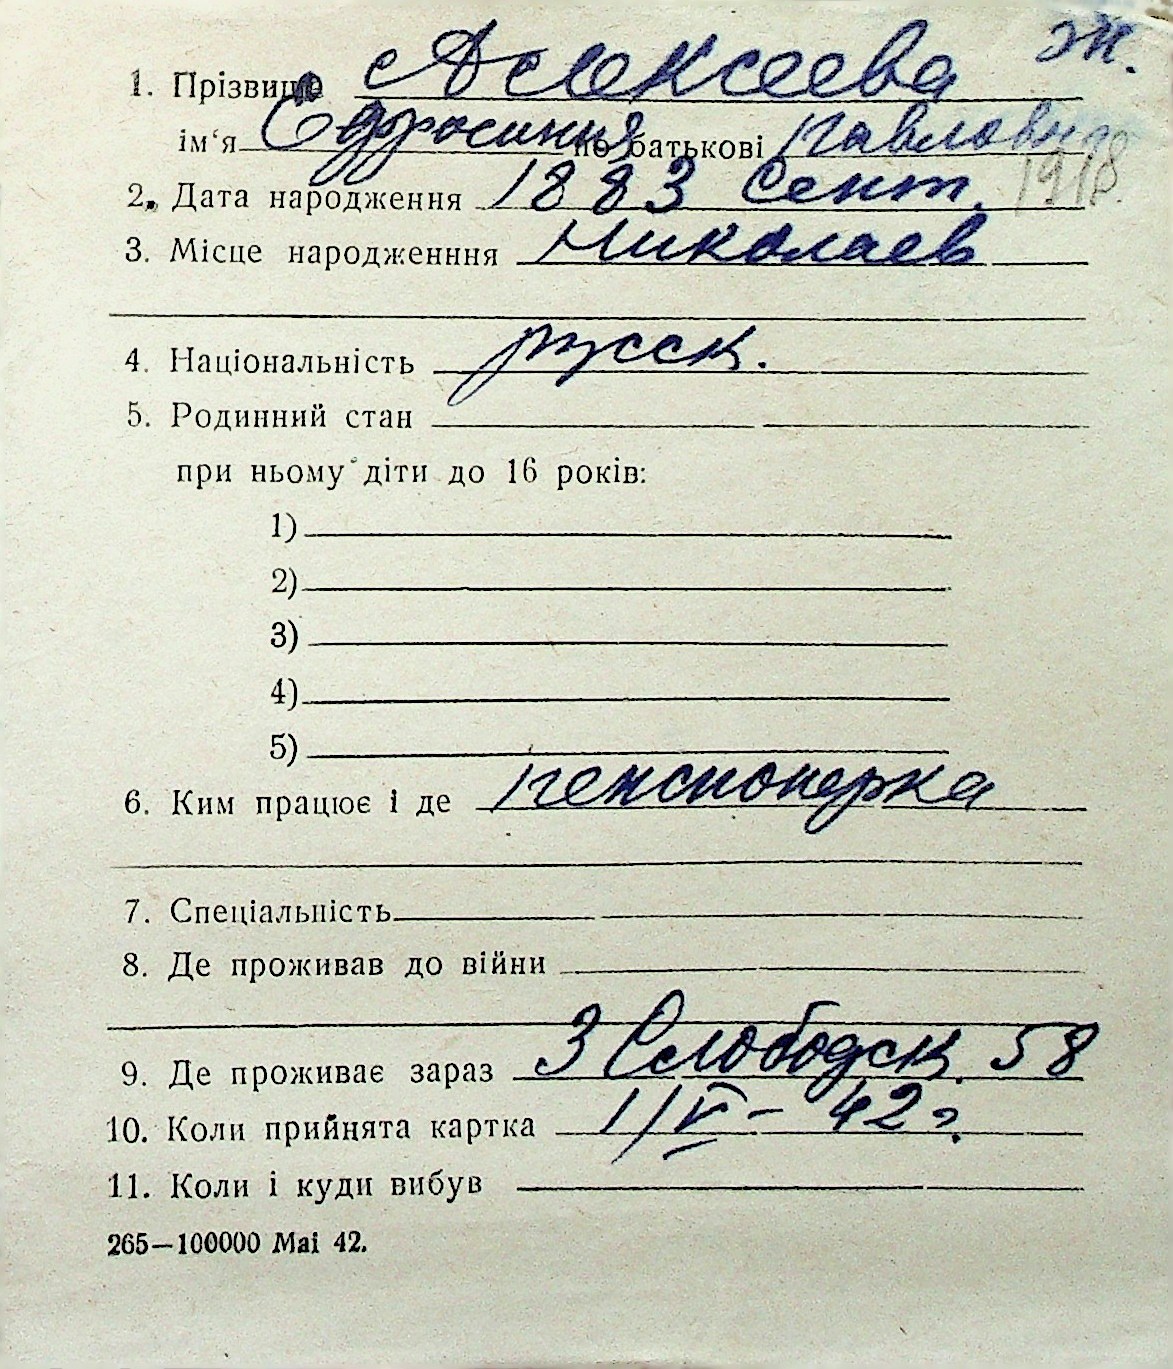 ж.
1. Прізвище Алексеева
ім‘я Ефросиния по батькові Павловна
2. Дата народження 1883 Сент. 1918
3. Місце народженння Николаев
4. Національність русск.
5. Родинний стан
при ньому діти до 16 років:
1)
2)
3)
4)
5)
6. Ким працює і де пенсионерка
7. Спеціальність
8. Де проживав до війни
9. Де проживає зараз 3 Слободск. 58
10. Коли прийнята картка 1/V – 42 г.
11. Коли і куди вибув
265—100000 Mai 42.